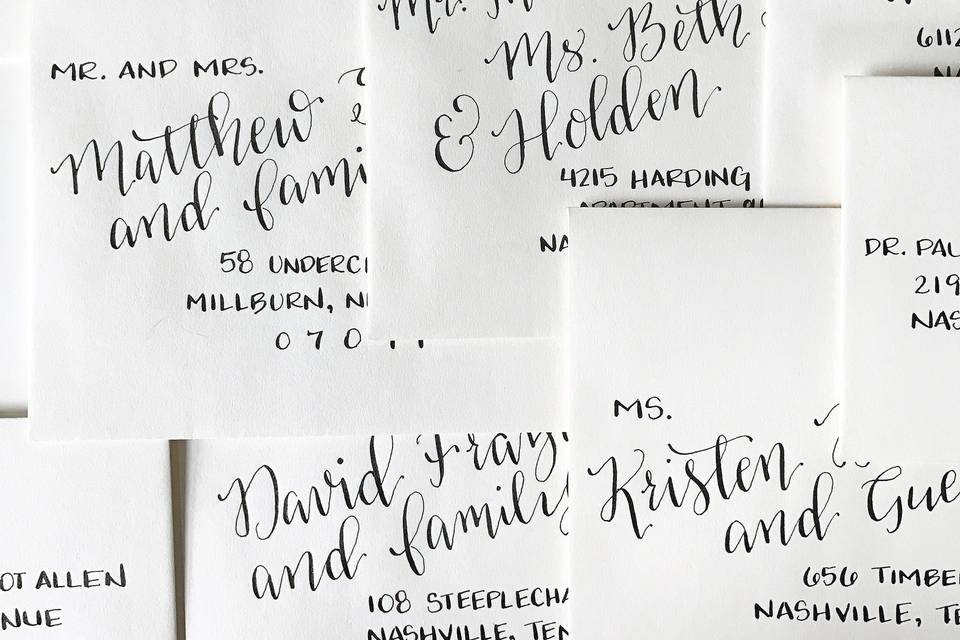 MR. AND MRS.
Matthew
and fami
58 UNDERCI
MILLBURN, N
0 7 0
Mr.
Ms. Beth
& Holden
4215 HARDING
APARTMENT
NA
6112
NA
DR. PAU
219
NAS
MS.
Kristen
and Gue
656 TIMBE
NASHVILLE, TE
David Fray
and family
108 STEEPLECHA
NASHVILLE, TEN
OT ALLEN
NUE